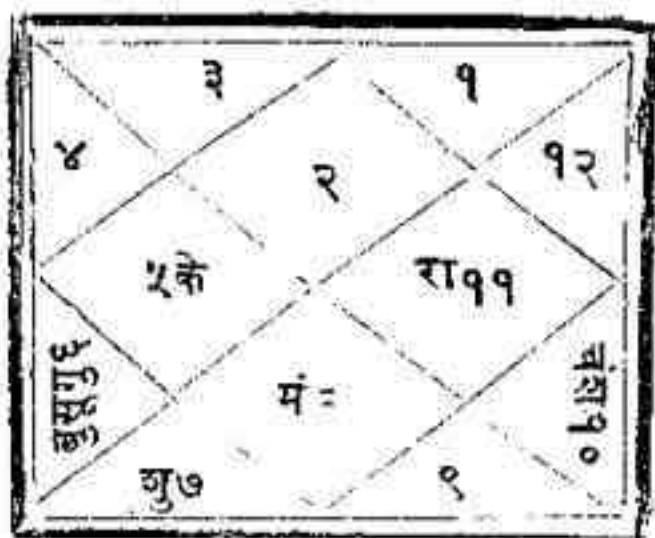 ३ १
४ २ १२
५के रा११
बुसूगु६ मं८ चंश१०
शु७ ९